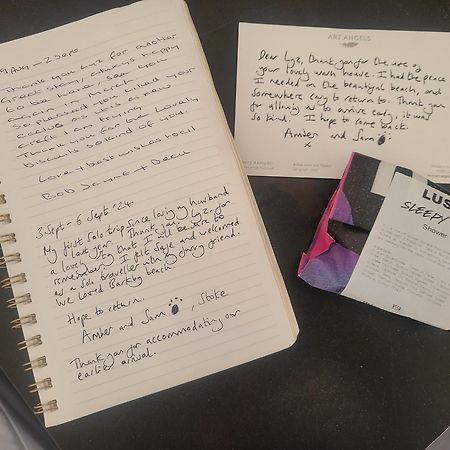 9 Aug – 2 Sept
Thank you Lyz for another
great stay, always happy
to be here & see you
again.
So pleased you liked your
cactus as it is a new
craft am trying
Thank you for the lovely
biscuits so kind of you.
Love & best wishes to all
Bob Jayne &
3 Sept – 6 Sept '24
My first solo trip since losing my husband
last year. Thank you, Lyz, for
a lovely stay that I will be sure to
remember. I felt safe and welcomed
as a solo traveller with my furry friend.
We loved Barkby beach.
Hope to return.
Amber and Sam , Stoke
Thank you for accommodating our
earlier arrival.
ART ANGELS
Dear Lyz, thank you for the use of
your lovely warm house. I had the peace
I needed on the beautiful beach, and
somewhere cosy to return to. Thank you
for allowing us to arrive early, it was
so kind. I hope to come back.
Amber and Sam
x
LUS
SLEEPY
Shower